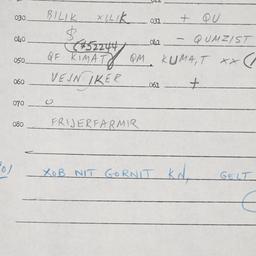 030 BILIK XILIK 031 + QU
040 $ 041 - QUMZIST
(*52244)
050 QF KIMAT QM. KUMA,T XX
060 VEJN IKER 061 +
070
080 FRIJERFARMIR
XOB NIT GORNIT KN, GELT